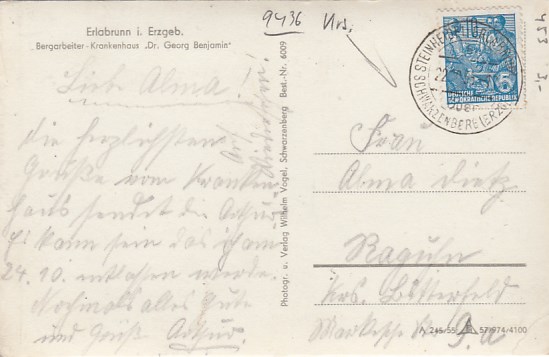 Erlabrunn i. Erzgeb.
Bergarbeiter-Krankenhaus „Dr. Georg Benjamin"
9436 Krs.
453 3,-
Liebe Alma!
die herzlichsten
Grüße vom Kranken
haus sendet dir Arthur
Es kann sein das ich am
24.10. entlassen werde.
Nochmals alles gute
und Gruß Arthur.
Auf
Wiedersehen!
Photogr. u. Verlag Wilhelm Vogel, Schwarzenberg Best.-Nr. 6009
DEUTSCHE
DEMOKRATISCHE REPUBLIK
5
STEINHEIDEL
SCHWARZENBERG (ERZGEB)
Frau
Alma Dietz
Raguhn
Krs. Bitterfeld
Markesche Str. 9a
A 245/55 57 974 4100